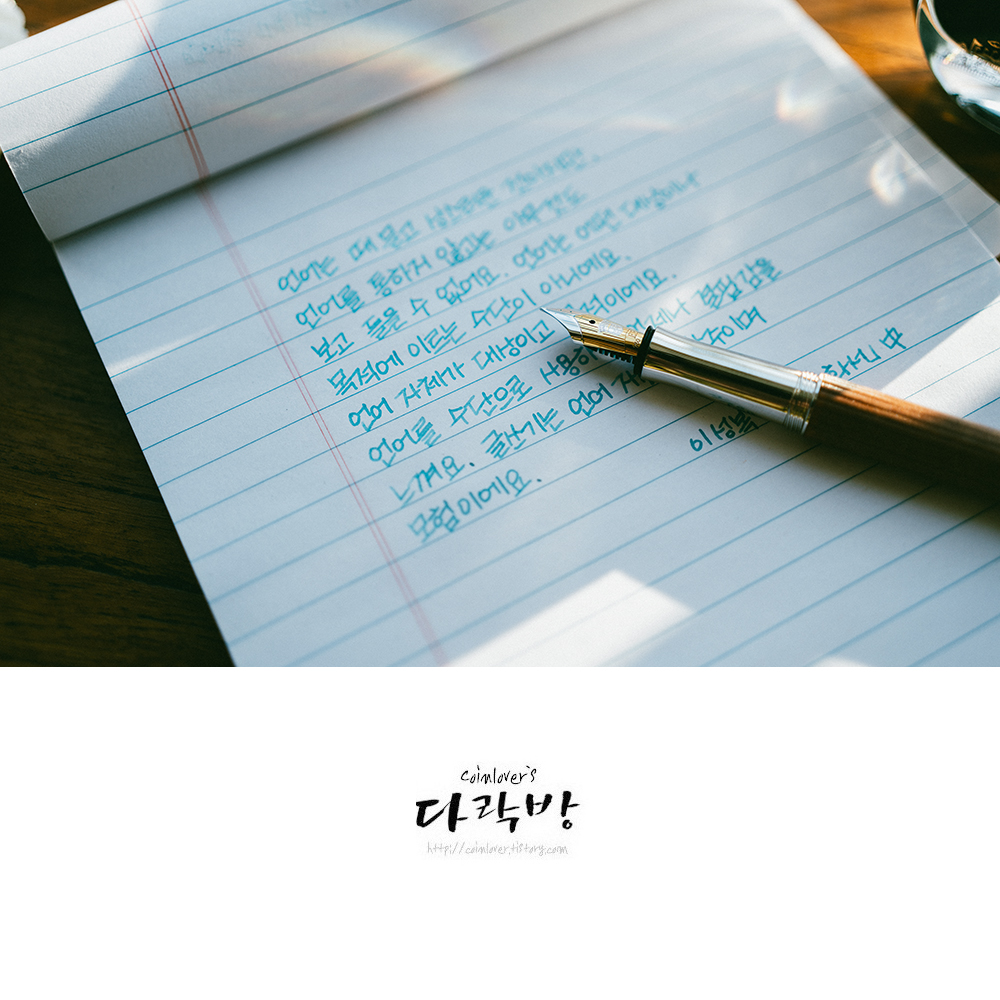 언어는 때 묻고
언어를 통하지 않고는 아무것도
보고 들을 수 없어요. 언어는 어떤 대상이나
목적에 이르는 수단이 아니에요.
언어 자체가 대상이고 목적이에요.
언어를 수단으로 언제나 범람감을
느껴요. 글쓰기는 언어
모험이에요.
이성복 中
coinlover's
다락방
http://coinlover.tistory.com